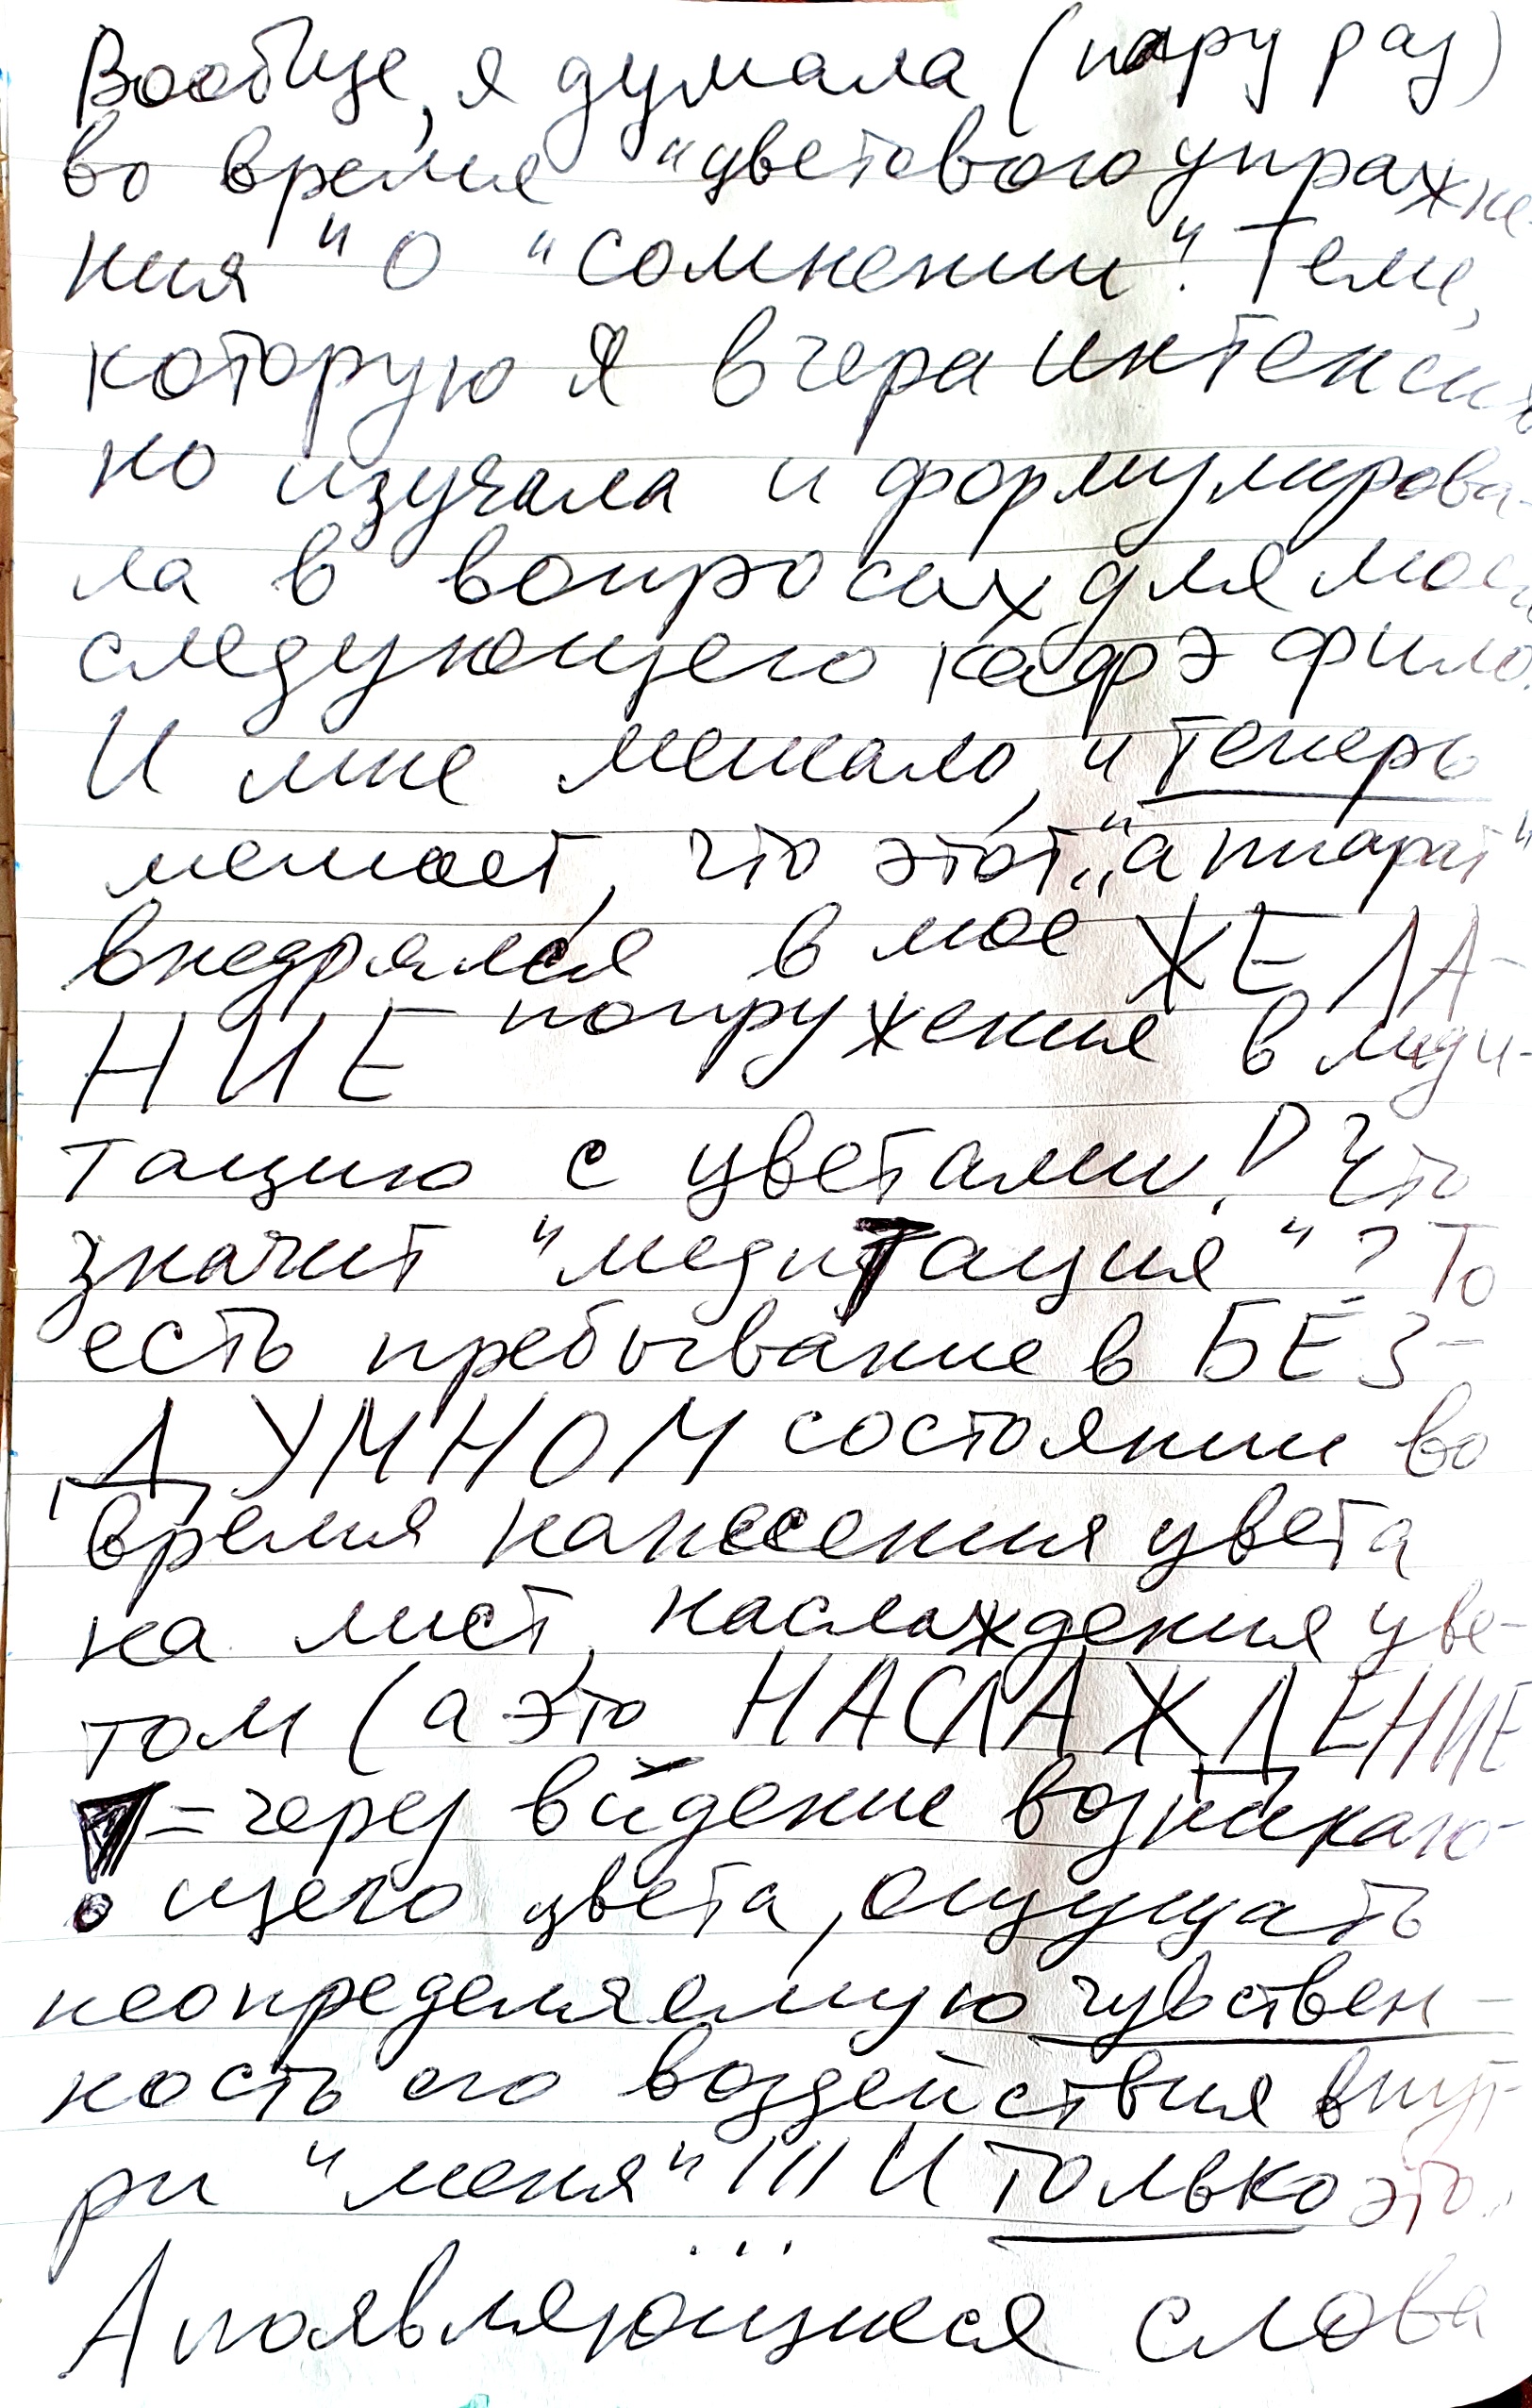 Вообще, я думала (пару раз)
во время "цветового упражне-
ния" о "сомнении". Теме,
которую я вчера интенсив
но изучала и формулирова-
ла в вопросах для моего
следующего кафэ фило.
И мне мешало, и теперь
мешает, что этот "аппарат"
внедрялся в мое ЖЕЛА-
НИЕ погружения в меди-
тацию с цветами! Что
значит "медитация"? То
есть пребывание в БЕЗ-
ДУМНОМ состоянии во
время нанесения цвета
на лист, наслаждения цве-
том (а это НАСЛАЖДЕНИЕ
= через вѝдение возникаю-
щего цвета, ощущать
неопределяемую чувствен-
ность его воздействия внут-
ри "меня"!!! И только это.
А появляющиеся слова